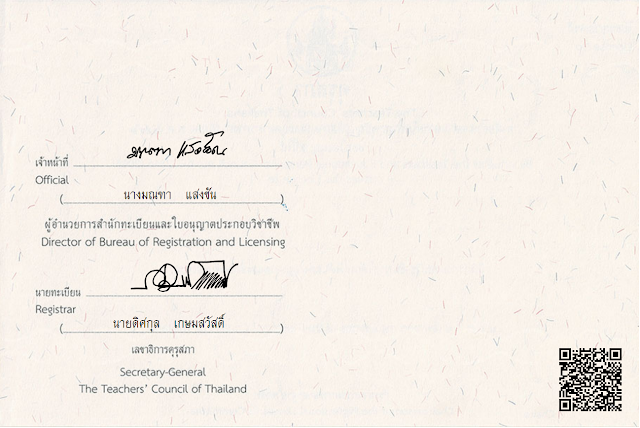 เจ้าหน้าที่ มณฑา แสงขัน
Official
(นางมณฑา แสงขัน)
ผู้อำนวยการสำนักทะเบียนและใบอนุญาตประกอบวิชาชีพ
Director of Bureau of Registration and Licensing
นายทะเบียน
Registrar
(นายดิศกุล เกษมสวัสดิ์)
เลขาธิการคุรุสภา
Secretary-General
The Teachers' Council of Thailand